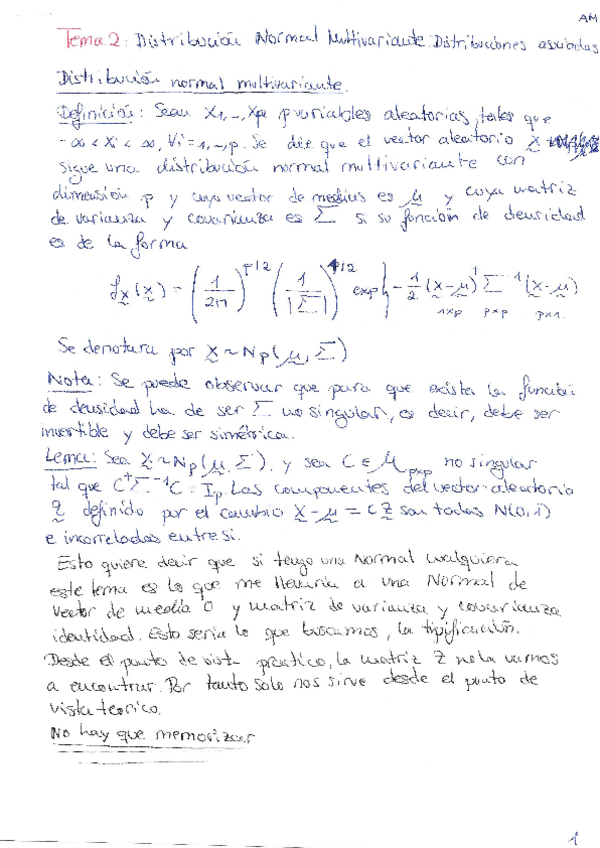 AM
Tema 2: Distribución Normal Multivariante. Distribuciones asociadas
Distribución normal multivariante.
Definición: Sean X₁,..,Xp p variables aleatorias, tales que
-∞ < Xi < ∞, ∀i = 1,..,p. Se dice que el vector aleatorio X
sigue una distribución normal multivariante con
dimensión p y cuyo vector de medias es μ y cuya matriz
de varianza y covarianza es Σ si su función de densidad
es de la forma
f_X(x) = (1/2π)^{p/2} (1/|Σ|)^{1/2} exp{-1/2 (x-μ)' Σ⁻¹ (x-μ)
1xp pxp px1
Se denotara por X ~ Np(μ, Σ)
Nota: Se puede observar que para que exista la función
de densidad ha de ser Σ no singular, es decir, debe ser
invertible y debe ser simétrica.
Lema: Sea X ~ Np(μ, Σ), y sea C ∈ M_pxp no singular
tal que C^t Σ⁻¹ C = Ip. Las componentes del vector aleatorio
Z definido por el cambio X - μ = CZ son todas N(0,1)
e incorreladas entre si.
Esto quiere decir que si tengo una Normal cualquiera
este lema es lo que me llevaria a una Normal de
vector de media 0 y matriz de varianza y covarianza
identidad. Esto seria lo que buscamos, la tipificación.
Desde el punto de vista practico, la matriz Z no la vamos
a encontrar. Por tanto solo nos sirve desde el punto de
vista teorico.
No hay que memorizar
1